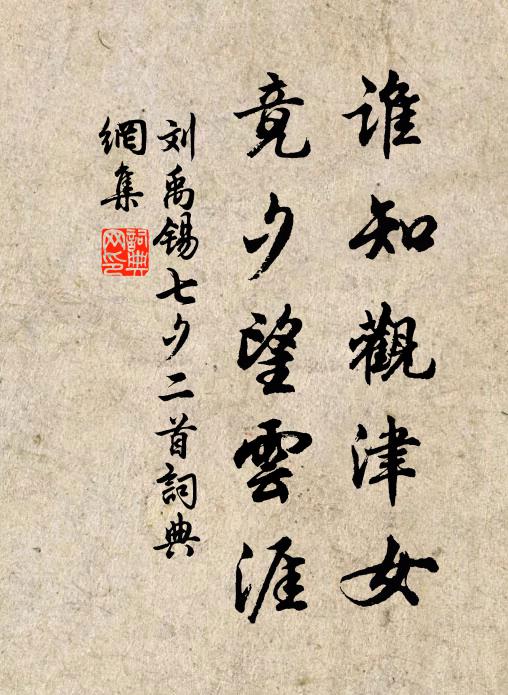 谁知觀津女
竟夕望雲涯
刘禹锡七夕二首詞典
網集
詞典
网印